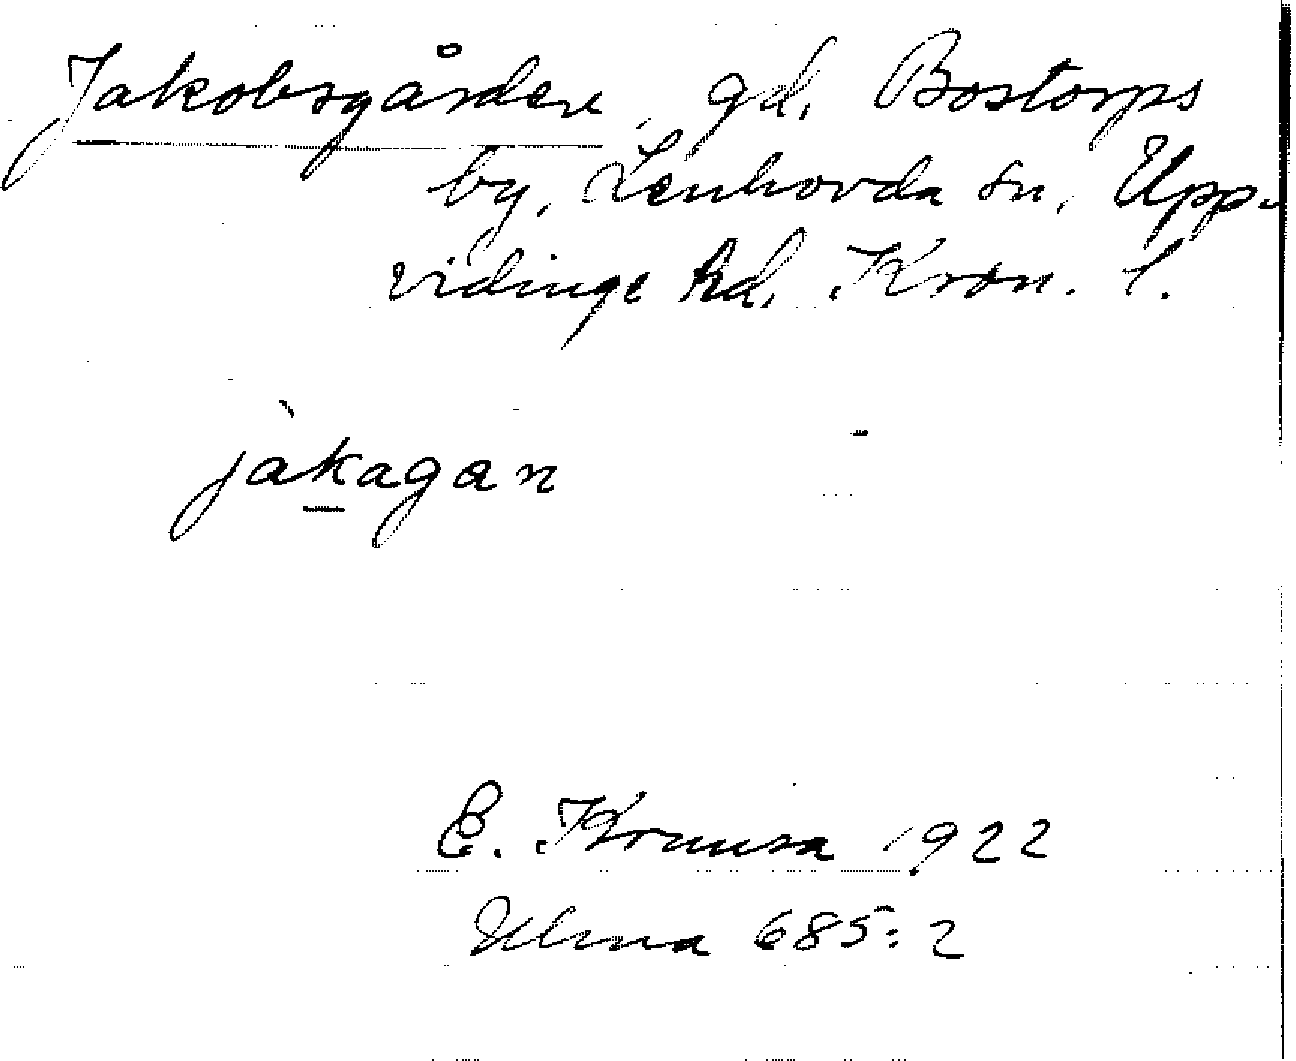 Jakobsgården, gd, Bostorps
by, Lenhovda sn, Upp-
vidinge hd, Kron. l.
jàkagan
E. Kronusa 1922
Ulma 685:2